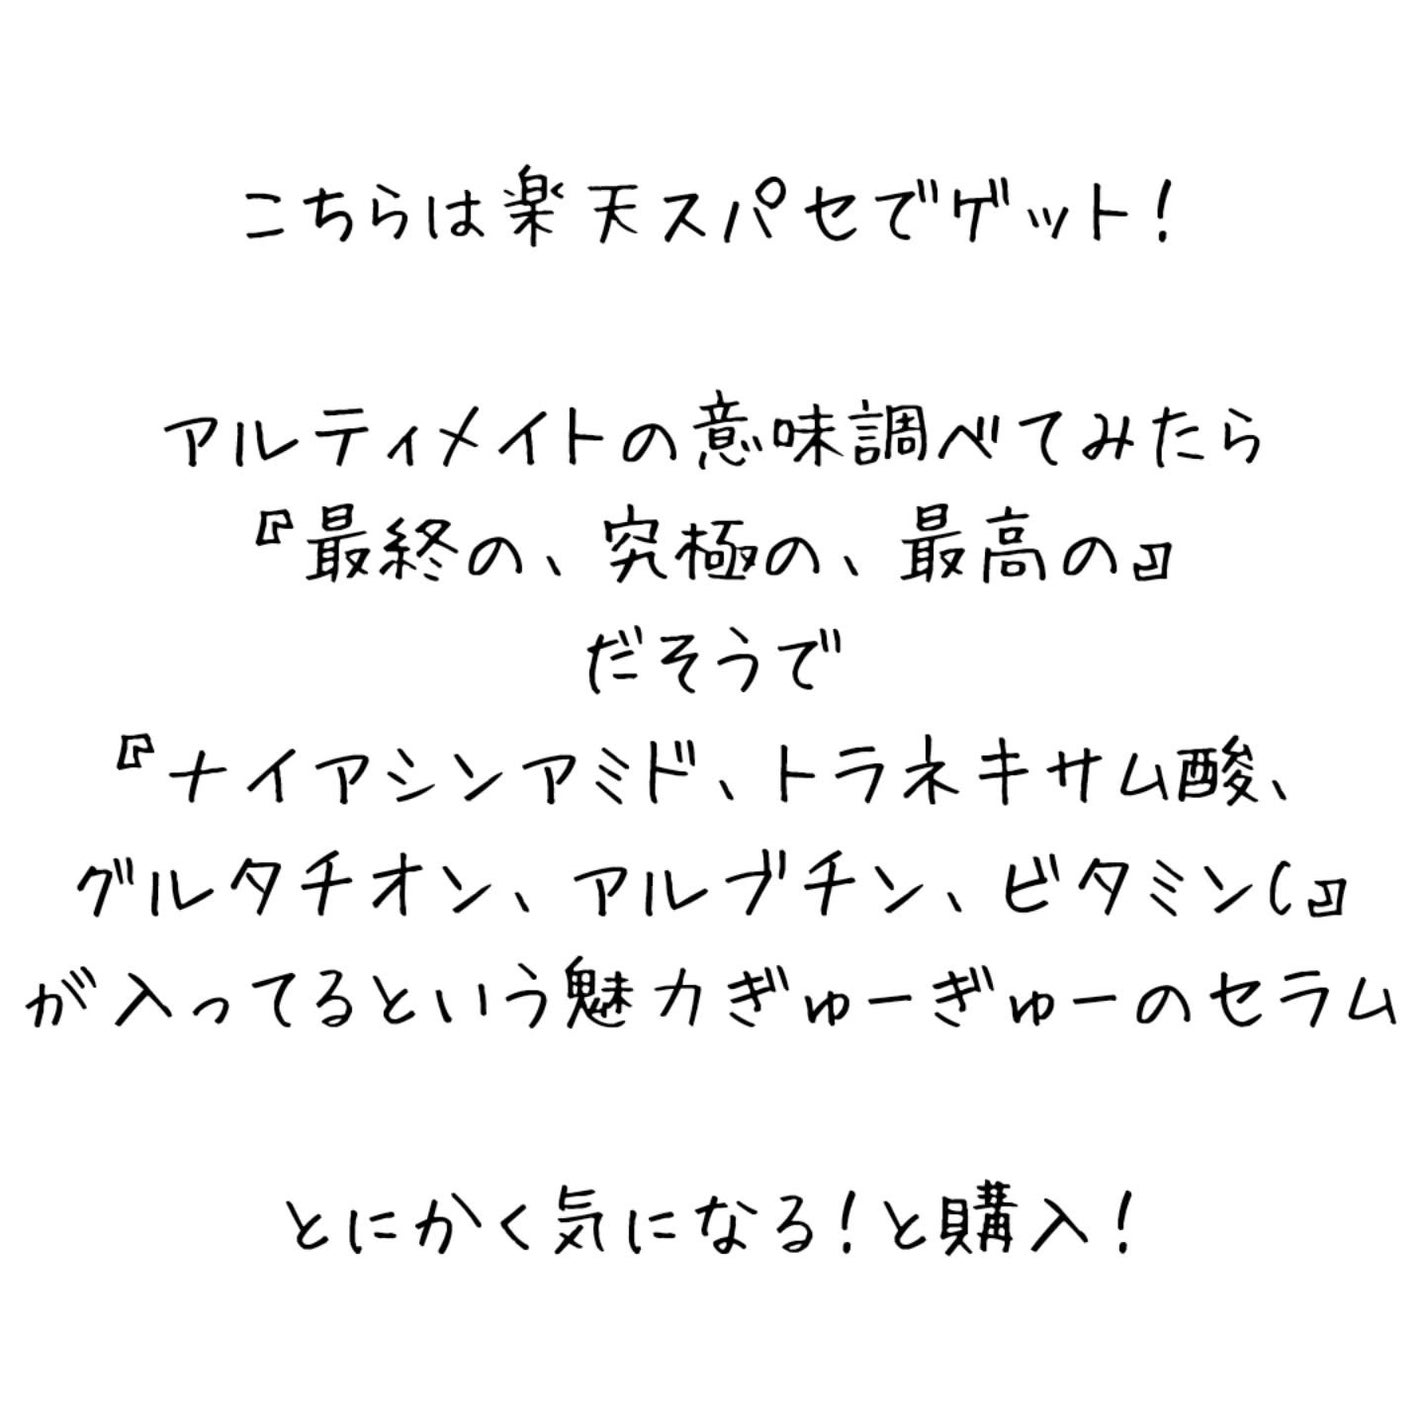 こちらは楽天スパセでゲット!
アルティメイトの意味調べてみたら
『最終の、究極の、最高の』
だそうで
『ナイアシンアミド、トラネキサム酸、
グルタチオン、アルブチン、ビタミンC』
が入ってるという魅力ぎゅーぎゅーのセラム
とにかく気になる!と購入!